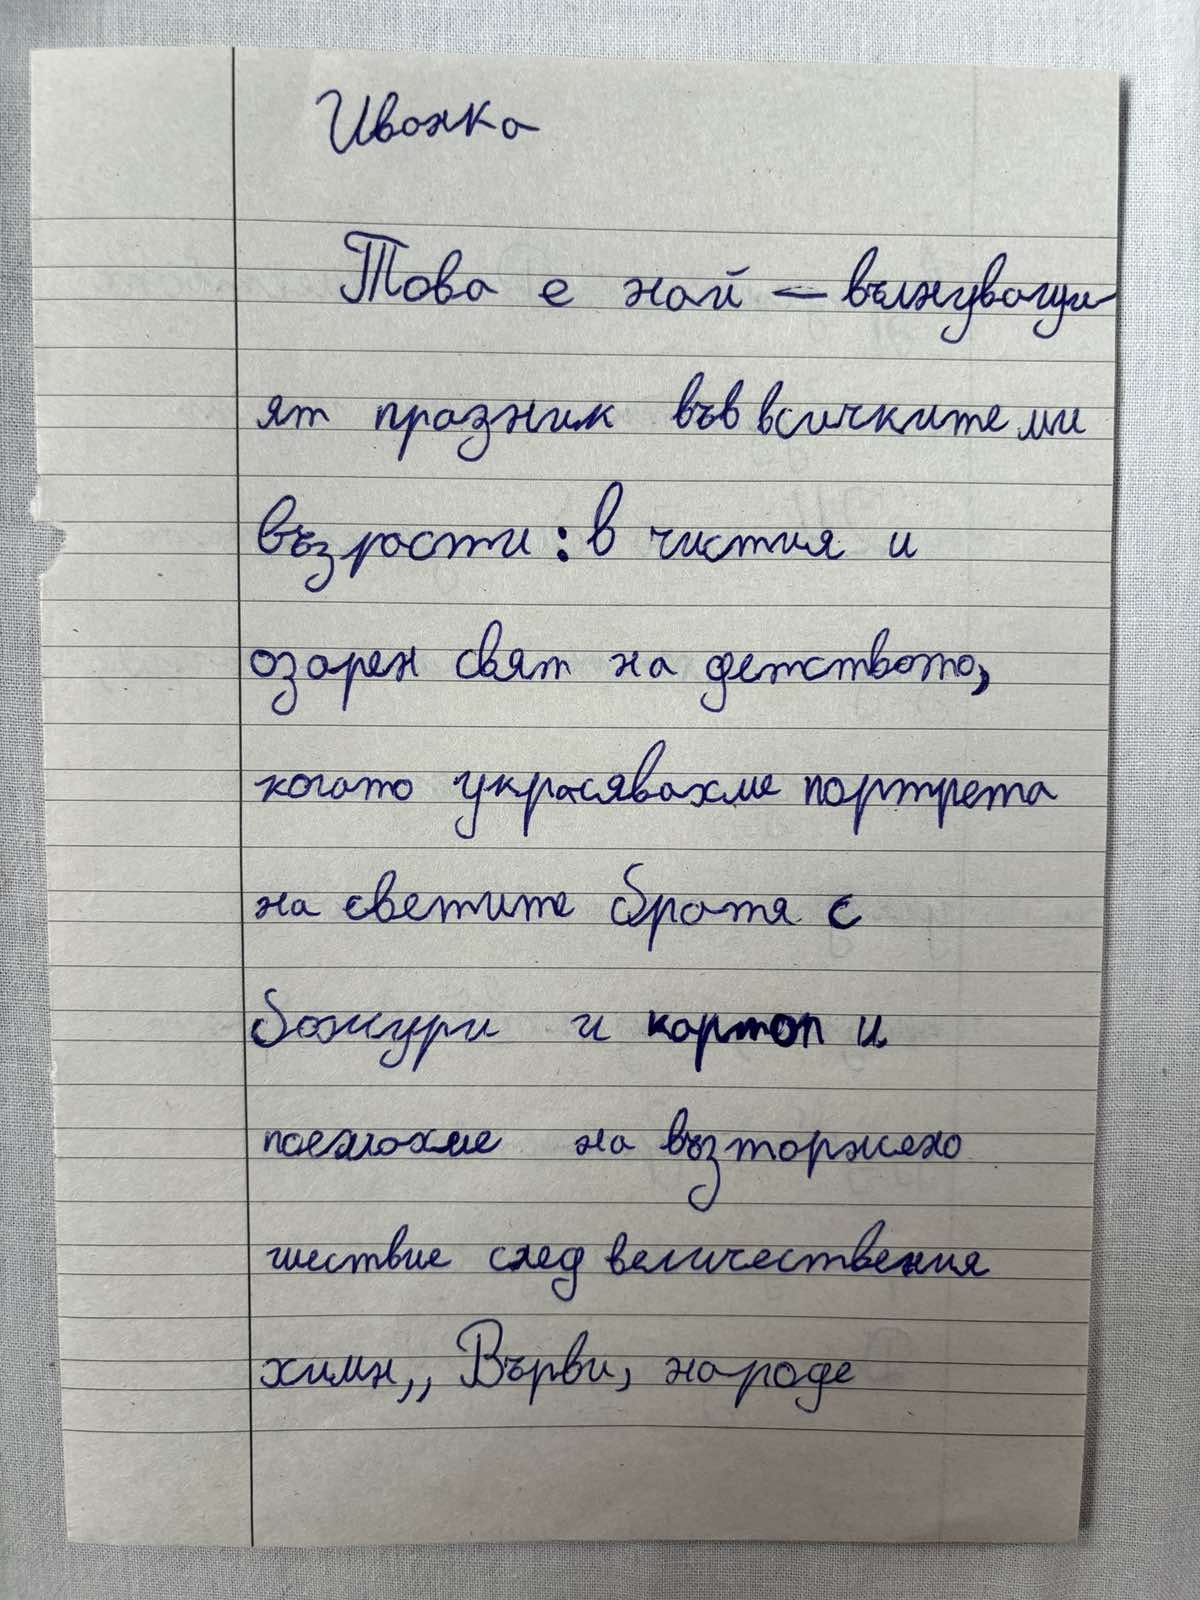 Иванка
Това е най - вълнуващи-
ят празник във всичките ми
възрасти: в чистия и
озарен свят на детството,
когато украсявахме портрета
на светите братя с
божури и картоп и
поемахме на възторжено
шествие след величествения
химн,, Върви, народе